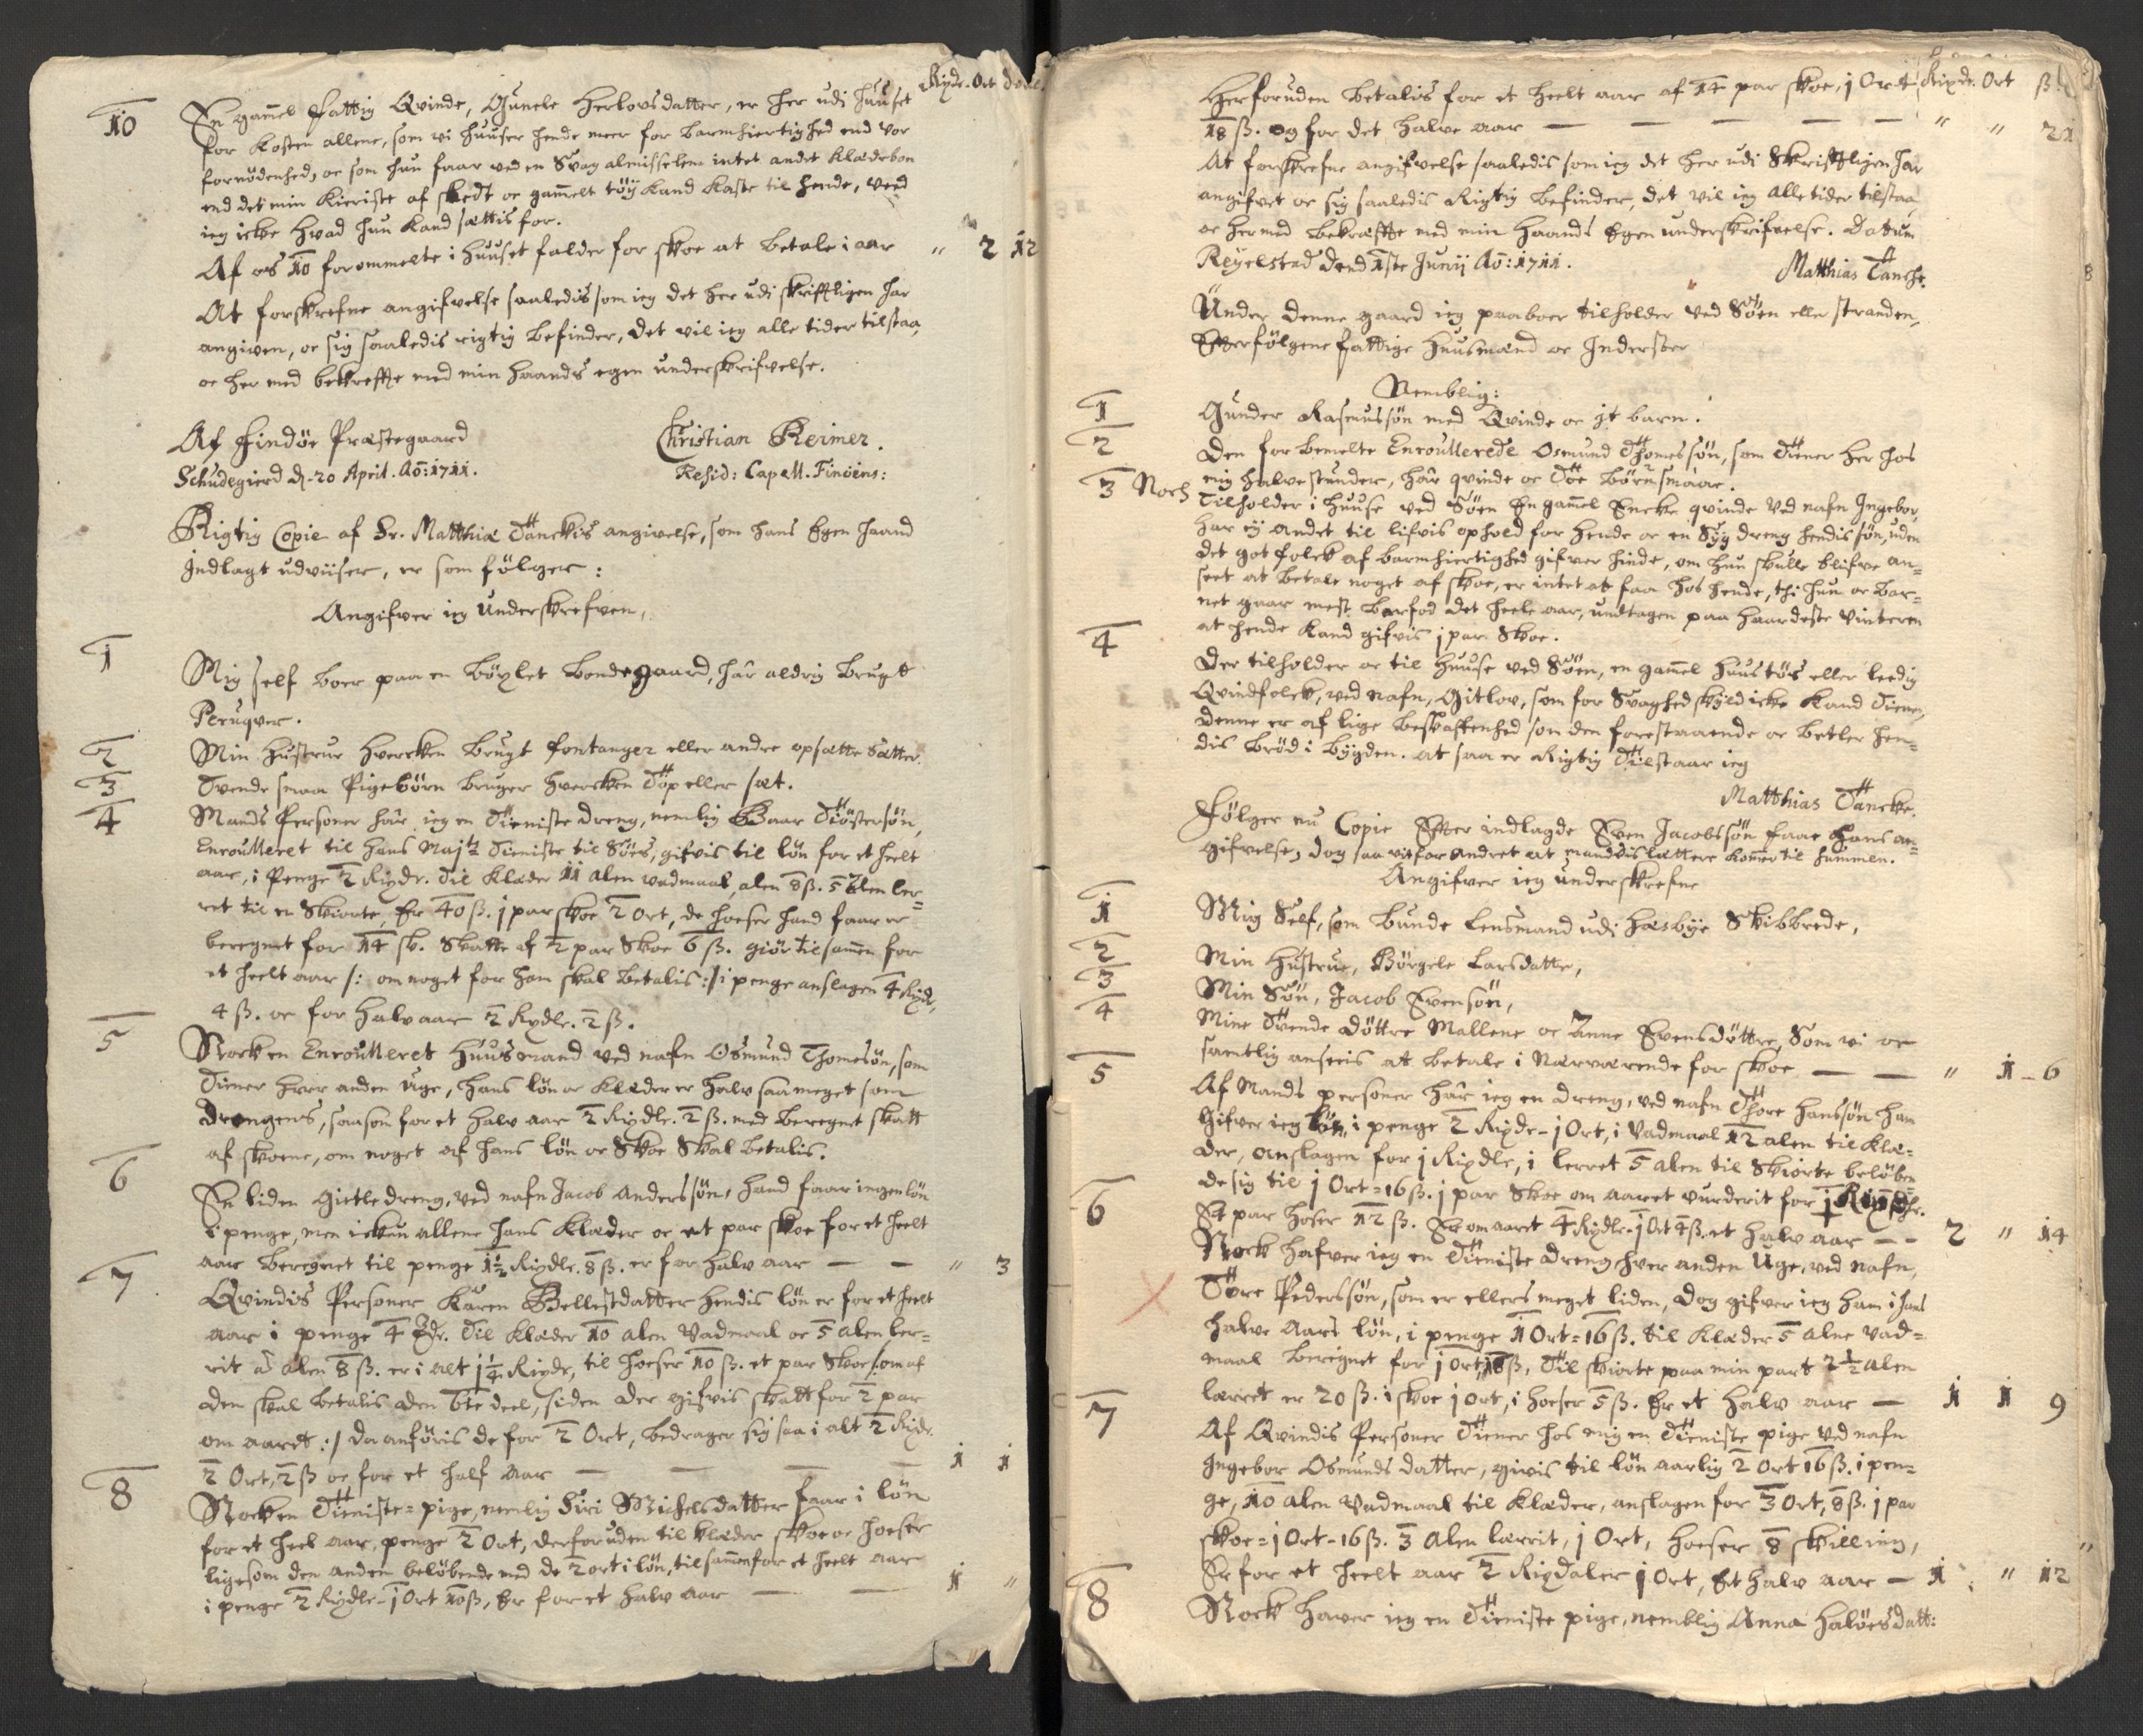 Rixdr. Ort
10
En gam̄el fattig Qvinde, Gunele Herlovsdatter, er her udi huuset
for Kosten allene, som vi huuser hende meer for barmhiertighed end vor
fornödenhed, oc som hun faar ved en Svag almisselem intet andet Klædebon
end det min Kieriste af skedt oc gam̄elt töÿ Kand Kaste til hende, veed
ieg icke hvad hun Kand sættis for.
Af os 10 forommelte i huuset falder for skoe at betale i aar " 2 12
At forskrefne angifvelse saaledis som ieg det her udi skrifftligen har
angiven, oc sig saaledis rigtig befinder, det vil ieg alle tider tilstaa,
oc her med bekreffte med min haands egen underskrifvelse.
Af Findöe Præstegaard
Christian Reimer.
Schudegierd d. 20 April. Aō: 1711.
Resid: Capell. Finöens:
Rigtig Copie af Hr. Matthiæ Tanckis angivelse, som hans Egen haand
Indlagt udviiser, er som fölger:
Angifver ieg underskrefven,
1
Mig self boer paa en böxlet bondegaard, har aldrig brugt
Peruqver.
2
Min Hustrue hvercken brugt fontanger eller andre opsatte Sætter.
3
Tvende smaa Pigebörn bruger hvercken Töp eller sæt.
4
Mands Personer har ieg en Tieniste dreng, nemlig Baar Tiöstersön,
Enroulleret til hans Maj:ts Tieniste til Söes, gifvis til lön for et heelt
aar, i Penge 2 Rixdr. til Klæder 11 alen vadmaal, alen 8 ß. 5 Alen ler=
ret til en Skiorte, Er 40 ß. 1 par skoe 2 Ort, de hoeser hand faar er
beregnet for 14 sk. Skatte af 2 par Skoe 6 ß. giör tilsam̄en for
et heelt aar /: om noget for ham skal betalis :/ i penge anslagen 4 Rixdr.
4 ß. oc for halv aar 2 Rixdlr. 2 ß.
5
Nock en Enroulleret huusmand ved nafn Osmund Thomesön, som
Tiener hver anden Uge, hans lön oc Klæder er halv saa meget som
drengens, saasom for et halv aar 2 Rixdlr. 2 ß. med beregnet skatt
af skoene, om noget af hans lön oc Skoe Skal betalis.
6
En liden Gietledreng, ved nafn Jacob Anderssön, hand faar ingen lön
i penge, men ickun allene hans Klæder oc et par skoe for et heelt
aar beregnet til penge 1½ Rixdlr. 8 ß. er for halv aar — — " 3
7
Qvindis Personer Karen Bellestdatter hendis lön er for et heelt
aar i penge 4 Rdr. Til Klæder 10 alen Vadmaal oc 5 alen ler=
rit a alen 8 ß. er i alt 1¼ Rixdr, til hoeser 10 ß. et par Skoe /: om af
den skal betalis den 6te deel, siden der gifvis skatt for 2 par
om aaret :/ da anföris de for 2 Ort, bedrager sig saa i alt 2 Rixdr.
2 Ort, 2 ß oc for et half aar — — — — 1 1
8
Nock en Tieniste=pige, nemlig Siri Michelsdatter faar i lön
for et heel aar, penge 2 Ort, derforuden til klæder skoe oc hoeser
ligesom den anden belöbende med de 2 ort i lön, tilsam̄en for et heelt aar
i penge 2 Rixdlr - 1 Ort 10 ß, Er for et halv aar — — 1 "
Rixdr. Ort ß
Herforuden betalis for et heelt aar af 14 par skoe, 1 Ort
18 ß. og for det halve aar — — — — — " " 21
At forskrefne angifvelse saaledis som ieg det her udi Skrifftligen har
angifvet oc sig saaledis Rigtig befinder, det vil ieg alle tider tilstaa
oc hermed bekræffte med min haands Egen underskrifvelse. Datum
Reyelstad dend 1ste Junij Aō: 1711.
Matthias Tanche.
Under denne gaard ieg paaboer tilholder ved Söen eller stranden,
Efterfölgene fattige huusmænd oc Inderster
Nemblig:
1
Gunder Rasmussön med Qvinde oc it barn.
2
Den forbemelte Enroullerede Osmund Thomessön, som Tiener her hos
mig halve stunder, har qvinde oc Toe börn smaae.
3 Noch
Tilholder i huuse ved Söen En gam̄el Encke qvinde ved nafn Ingebor,
har ej andet til lifvis ophold for hende oc en Syg dreng hendis sön, uden
det got folck af barmhiertighed gifver hinde, om hun skulle blifve an=
seet at betale noget af skoe, er intet at faa hos hende, thi hun oc bar=
net gaar mest barfod det heele aar, undtagen paa haardeste Vinteren
at hende Kand gifvis 1 par Skoe.
4
Der tilholder oc til huuse ved Söen, en gam̄el huustös eller leedig
Qvindfolck, ved nafn, Gitlov, som for Svaghed skyld icke Kand Tiene,
denne er af lige beskaffenhed som den forestaaende oc betler hen=
dis bröd i bygden. at saa er Rigtig Tilstaar ieg
Matthias Tancke.
Fölger nu Copie Efter indlagde Sven Jacobssön faar hans an=
gifvelse, dog saa vit forandret at mandvis lættere kom̄er til summen.
Angifver ieg underskrefne
1
Mig Self, som bunde Lensmand udi Hæsbye Skibbrede,
2
Min Hustrue, Börgele Larsdatter,
3
Min Sön, Jacob Svensön,
4
Mine Tvende döttre Mallene oc Anne Svensdöttre, Som vi oc
samtlig anseeis at betale i Nærværende for skoe — — " 1 - 6
5
Af Mands personer har ieg en dreng, ved nafn Thore Hanssön ham
gifver ieg lön, i penge 2 Rixdr - 1 Ort, i Vadmaal 12 alen til Klæ=
der, anslagen for 1 Rixdlr, i lerret 5 alen til Skiorte belöben=
de sig til 1 Ort = 16 ß. 1 par Skoe om aaret vurderit for
Et par hoser 12 ß. Er om aaret 4 Rixdlr - 1 Ort 4 ß. et halv aar — — 2 " 14
6
Nock hafver ieg en Tieniste dreng hver anden Uge, ved nafn,
Töre Pederssön, som er ellers meget liden, dog gifver ieg ham i hans
halve Aars lön, i penge 1 Ort = 16 ß. til Klæder 5 alne Vad=
maal beregnet for 1 Ort, 16 ß, Til skiorte paa min part 2½ alen
lærret er 20 ß. i skoe 1 Ort, i hoeser 5 ß. Er et halv aar — 1 1 9
7
Af Qvindis Personer Tiener hos mig en Tieniste pige ved nafn
Ingebor Osmunds datter, givis til lön aarlig 2 Ort 16 ß. i pen=
ge, 10 alen Vadmaal til Klæder, anslagen for 3 Ort, 8 ß. 1 par
skoe = 1 Ort - 16 ß. 3 Alen lærrit, 1 Ort, hoeser 8 skilling,
Er for et heelt aar 2 Rixdaler 1 Ort, Et halv aar — 1 " 12
8
Nock haver ieg en Tieniste pige, nemblig Anna Halöersdatt: